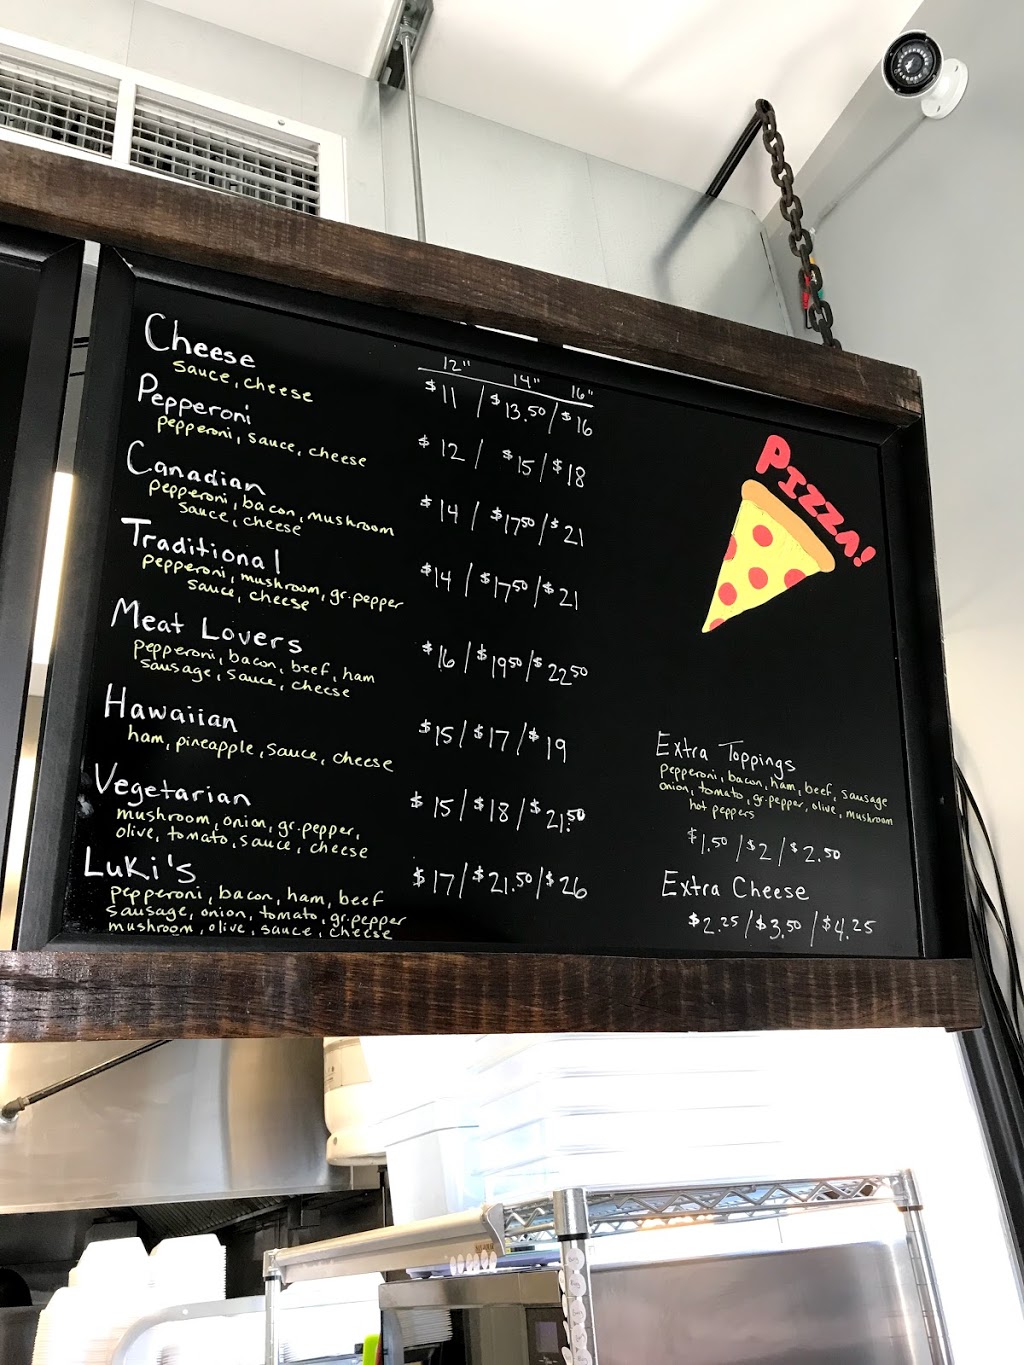 12" 14" 16"
Cheese $11 / $13.50 / $16
sauce, cheese
Pepperoni $12 / $15 / $18
pepperoni, sauce, cheese
Canadian $14 / $17.50 / $21
pepperoni, bacon, mushroom
sauce, cheese
Traditional $14 / $17.50 / $21
pepperoni, mushroom, gr.pepper
sauce, cheese
Meat Lovers $16 / $19.50 / $22.50
pepperoni, bacon, beef, ham
sausage, sauce, cheese
Hawaiian $15 / $17 / $19
ham, pineapple, sauce, cheese
Vegetarian $15 / $18 / $21.50
mushroom, onion, gr.pepper,
olive, tomato, sauce, cheese
Luki's $17 / $21.50 / $26
pepperoni, bacon, ham, beef
sausage, onion, tomato, gr.pepper
mushroom, olive, sauce, cheese
PIZZA!
Extra Toppings
Pepperoni, bacon, ham, beef, sausage
onion, tomato, gr.pepper, olive, mushroom
hot peppers
$1.50 / $2 / $2.50
Extra Cheese
$2.25 / $3.50 / $4.25